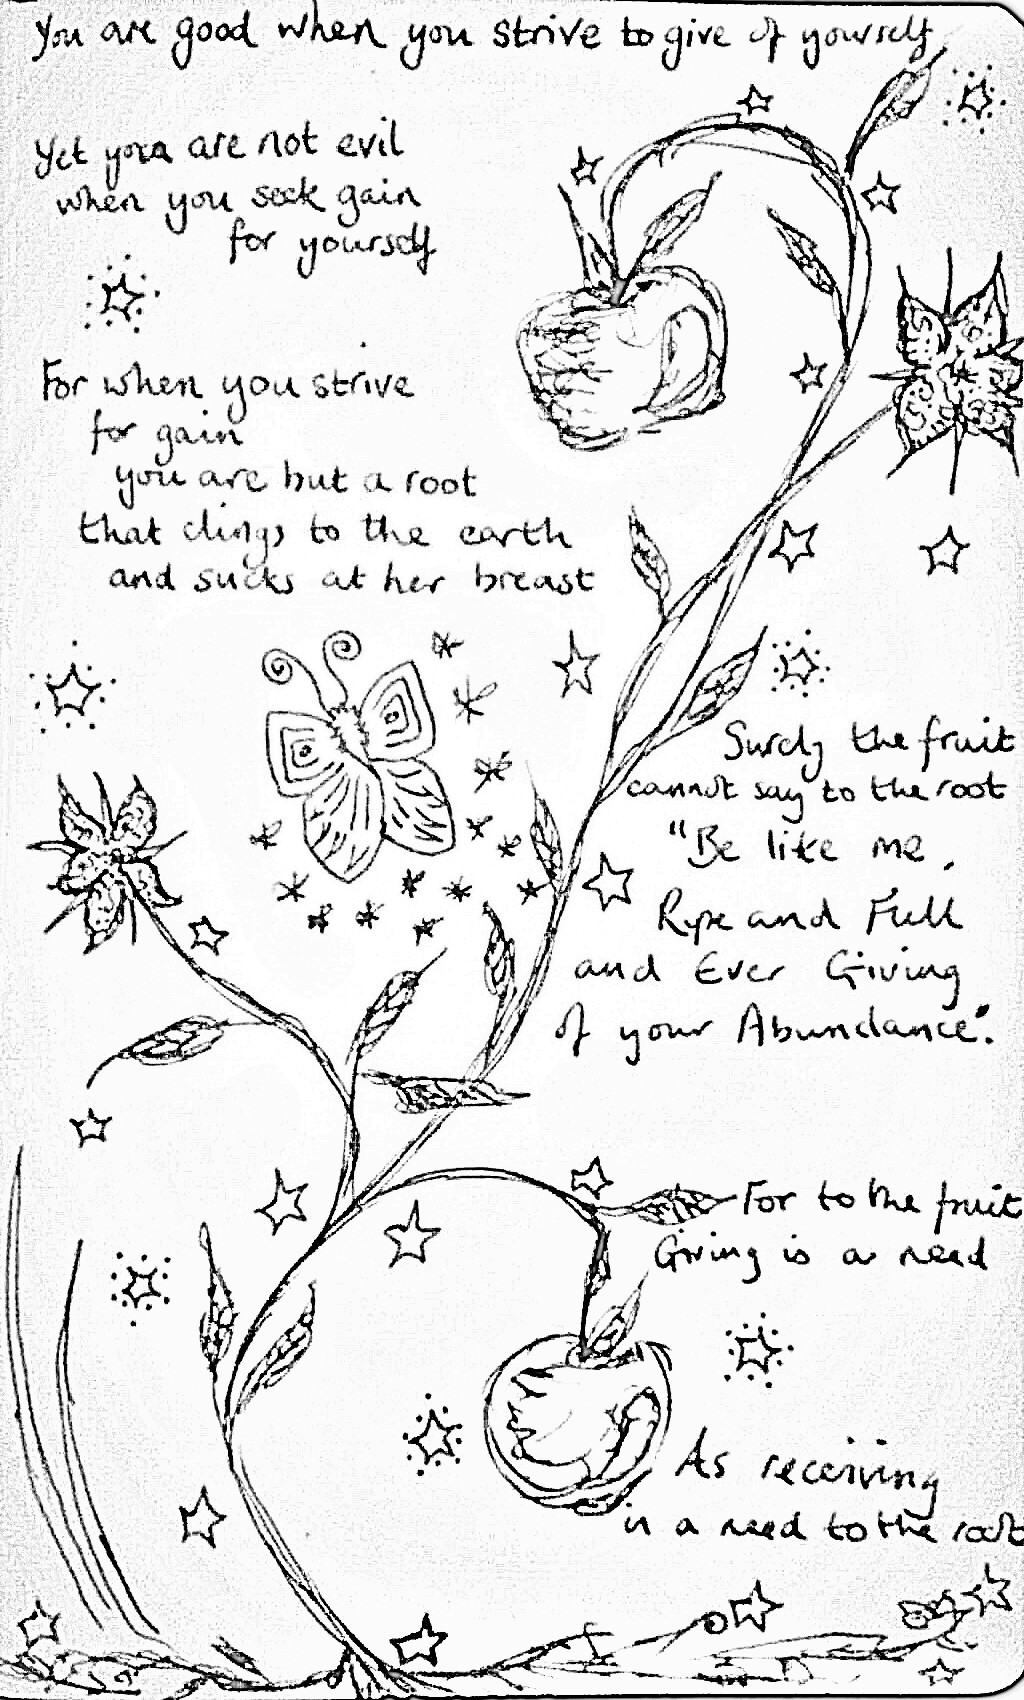 You are good when you strive to give of yourself
Yet you are not evil
when you seek gain
for yourself
For when you strive
for gain
you are but a root
that clings to the earth
and sucks at her breast
Surely the fruit
cannot say to the root
"Be like me,
Ripe and Full
and Ever Giving
of your Abundance".
For to the fruit
Giving is a need
As receiving
is a need to the root